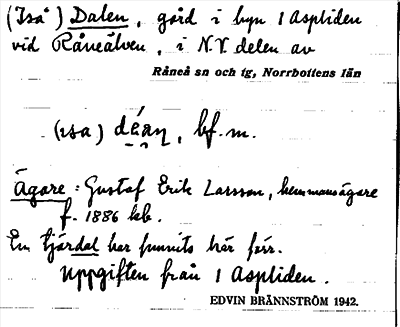 (Iså) Dalen, gård i byn 1 Aspliden
vid Råneälven, i N.V. delen av
Råneå sn och tg, Norrbottens län
(ısa) déaṇ, bf. m.
Ägare: Gustaf Erik Larsson, hemmansägare
f. 1886 hb.
En tjärdal har funnits här förr.
Uppgiften från 1 Aspliden.
EDVIN BRÄNNSTRÖM 1942.